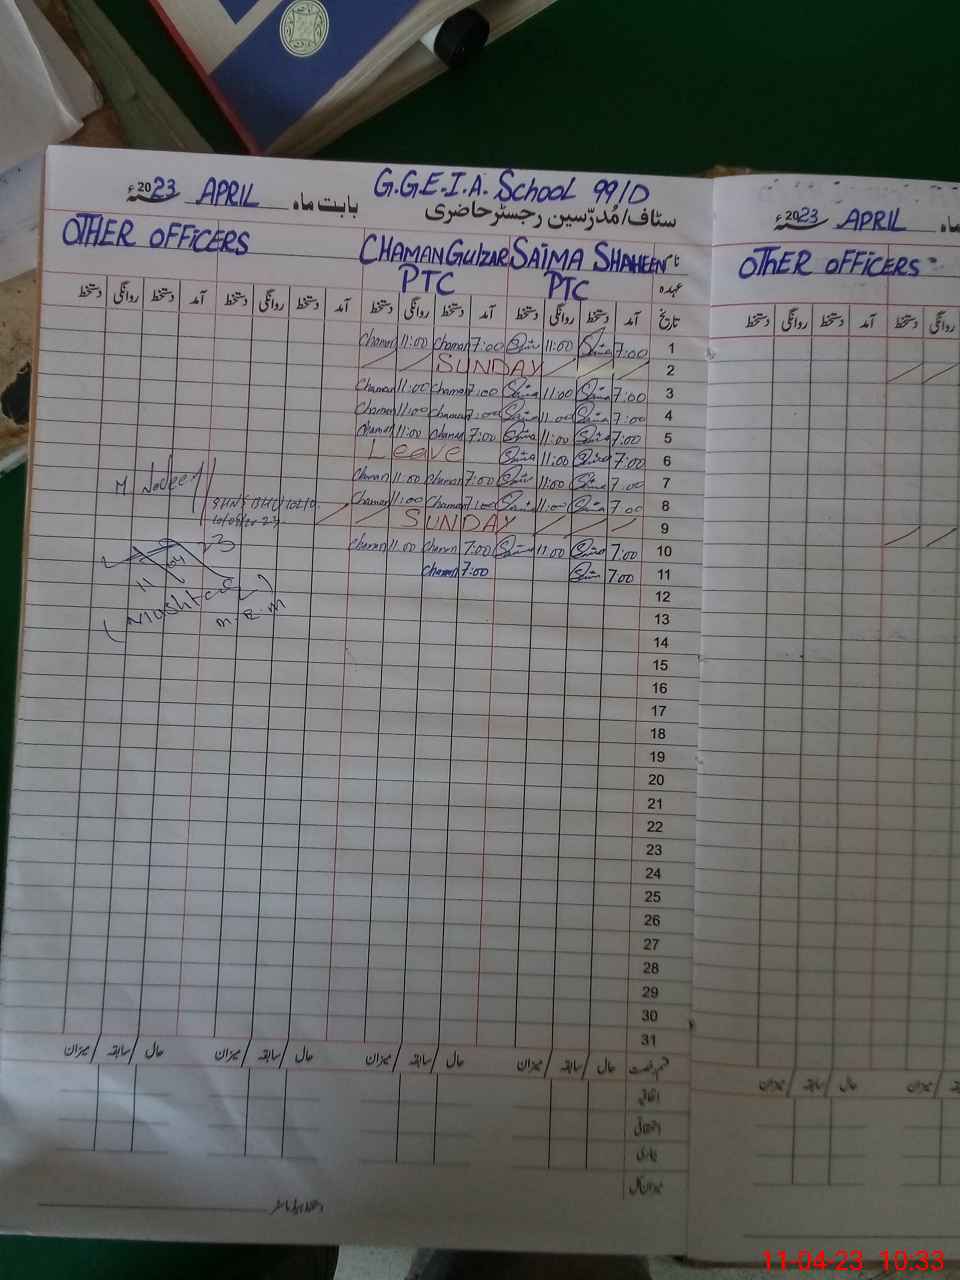 G.G.E.I.A. School 99/D
2023ء APRIL بابت ماہ
سٹاف/مُدرّسین رجسٹر حاضری
OTHER OFFICERS CHAMAN Gulzar SAIMA SHAHEEN
PTC PTC عہدہ
دستخط روانگی دستخط آمد دستخط روانگی دستخط آمد دستخط روانگی دستخط آمد دستخط روانگی دستخط آمد تاریخ
Chaman 11:00 Chaman 7:00 11:00 Saima 7:00 1
SUNDAY 2
Chaman 11:00 Chaman 7:00 Saima 11:00 Saima 7:00 3
Chaman 11:00 Chaman 7:00 Saima 11:00 Saima 7:00 4
Chaman 11:00 Chaman 7:00 Saima 11:00 Saima 7:00 5
Leave Saima 11:00 Saima 7:00 6
Chaman 11:00 Chaman 7:00 Saima 11:00 Saima 7:00 7
Chaman 11:00 Chaman 7:00 Saima 11:00 Saima 7:00 8
SUNDAY 9
Chaman 11:00 Chaman 7:00 Saima 11:00 Saima 7:00 10
Chaman 7:00 Saima 7:00 11
12
13
14
15
16
17
18
19
20
21
22
23
24
25
26
27
28
29
30
31
میزان سابقہ حال میزان سابقہ حال میزان سابقہ حال میزان سابقہ حال
اتفاقی
میزان کل
2023ء APRIL ماہ
OTHER OFFICERS
دستخط روانگی دستخط آمد دستخط روانگی
میزان سابقہ حال میزان
11-04-23 10:33